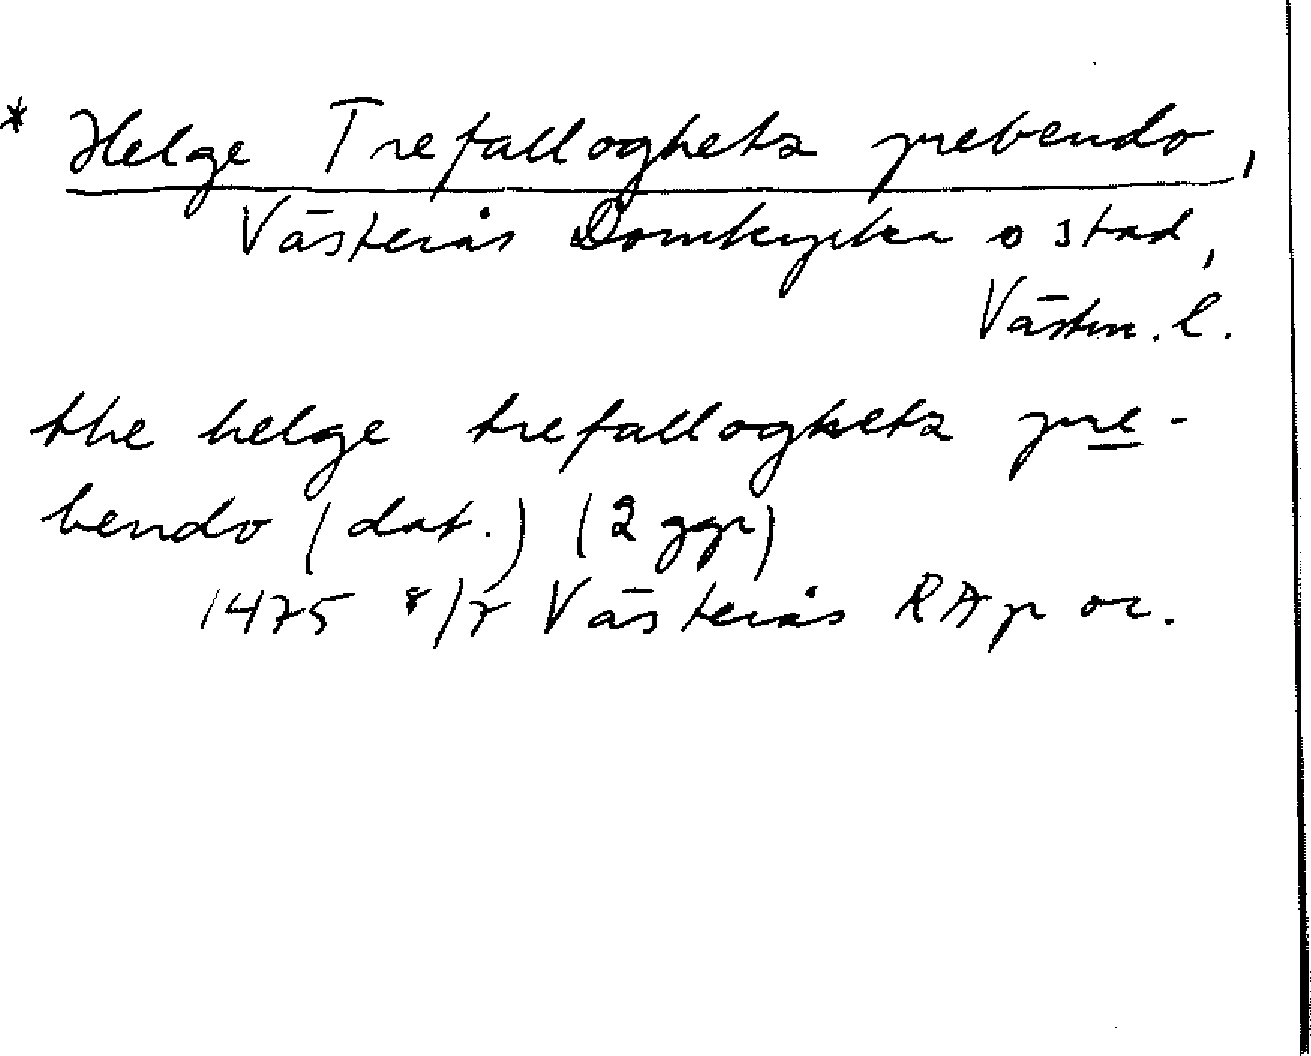 * Helge Trefalloghetz prebendo,
Västerås Domkyrka o stad,
Västm. l.
the helge trefalloghetz pre-
bendo (dat.) (2 ggr)
1475 8/7 Västerås RAp or.